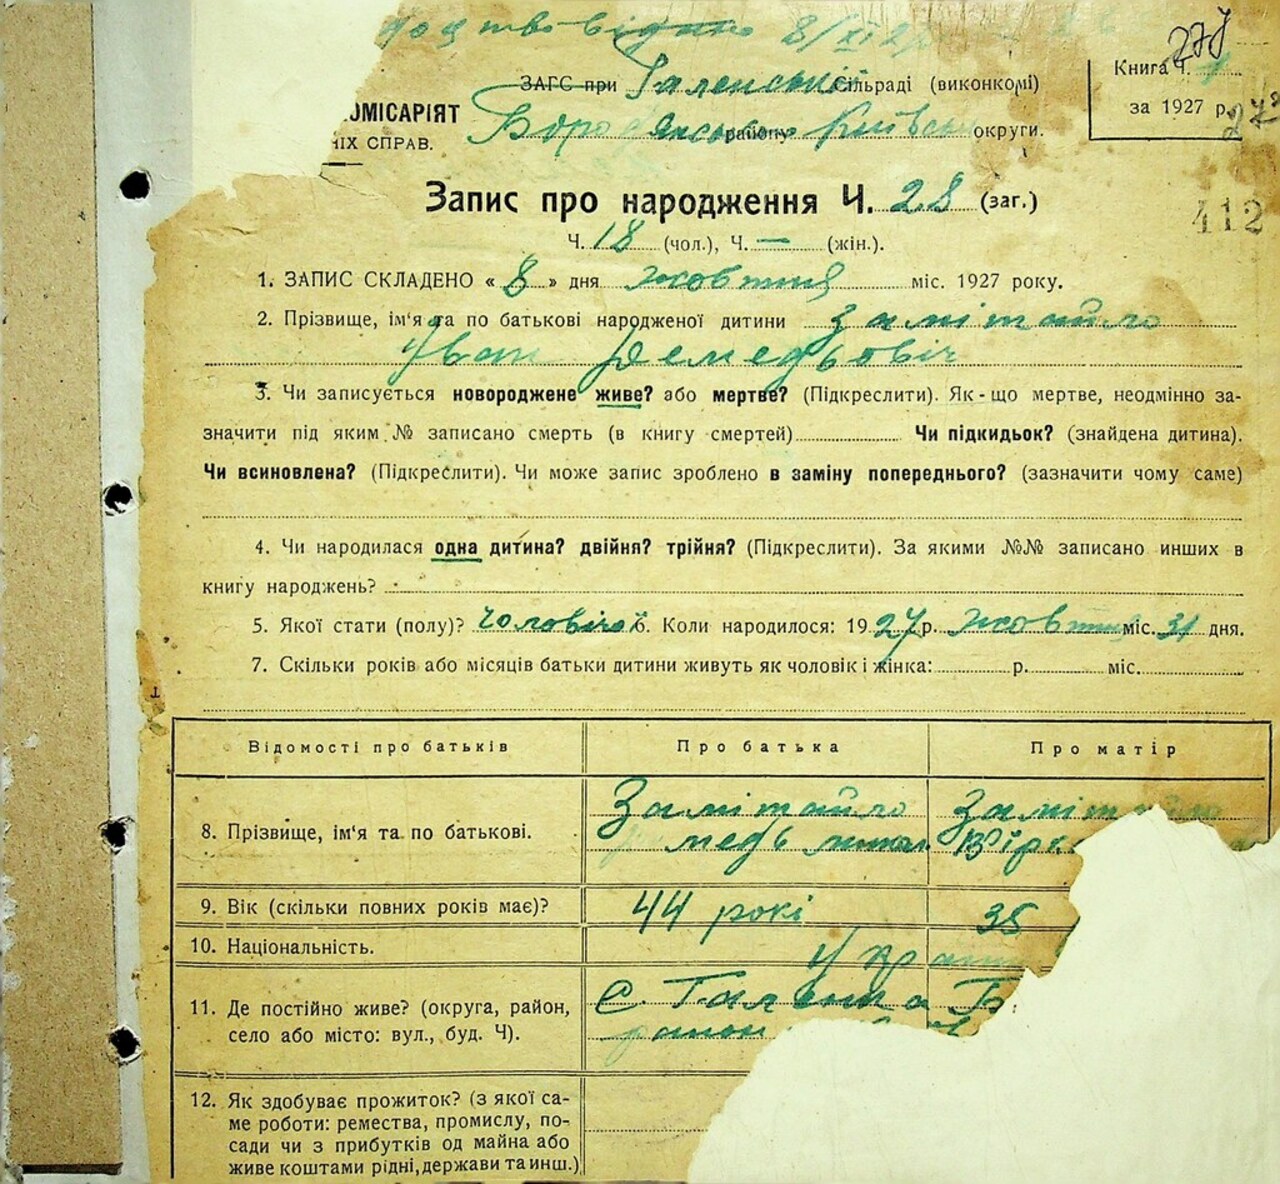 відано 8/XI 27
277
ЗАГС при Галенській сільраді (виконкомі)
Книга Ч. 1
ОМІСАРІЯТ
Бородянського району Київської округи.
за 1927 р.
278
ІХ СПРАВ.
Запис про народження Ч. 28 (заг.)
412
Ч. 18 (чол.), Ч. — (жін.).
1. ЗАПИС СКЛАДЕНО « 8 » дня жовтня міс. 1927 року.
2. Прізвище, ім'я та по батькові народженої дитини Замітайло
Іван Демедьовіч
3. Чи записується новороджене живе? або мертве? (Підкреслити). Як-що мертве, неодмінно за-
значити під яким № записано смерть (в книгу смертей) Чи підкидьок? (знайдена дитина).
Чи всиновлена? (Підкреслити). Чи може запис зроблено в заміну попереднього? (зазначити чому саме)
4. Чи народилася одна дитина? двійня? трійня? (Підкреслити). За якими №№ записано инших в
книгу народжень?
5. Якої статі (полу)? чоловічої 6. Коли народилося: 1927 р. жовтня міс. 31 дня.
7. Скільки років або місяців батьки дитини живуть як чоловік і жінка: р. міс.
Відомості про батьків Про батька Про матір
8. Прізвище, ім'я та по батькові.
Замітайло
медь
Заміт
Вірк
9. Вік (скільки повних років має)? 44 рокі 35
10. Національність. Украін
11. Де постійно живе? (округа, район,
село або місто: вул., буд. Ч).
С. Галенка Б
район
12. Як здобуває прожиток? (з якої са-
ме роботи: ремества, промислу, по-
сади чи з прибутків од майна або
живе коштами рідні, держави та инш.)